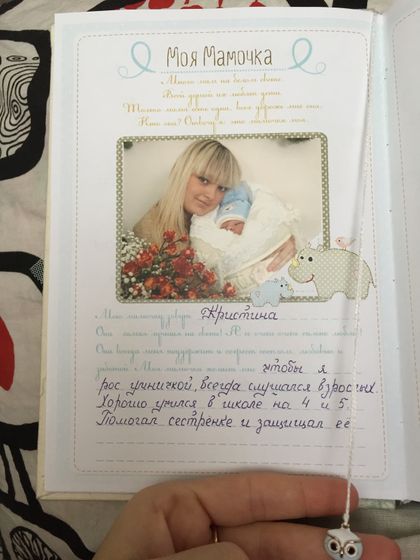 Моя Мамочка
Много мам на белом свете,
Всей душой их любят дети.
Только мама есть одна, всех дороже мне она.
Кто она? Отвечу я: это мамочка моя.
Мою мамочку зовут Кристина
Она - самая лучшая на свете! Я её очень-очень сильно люблю!
Она всегда меня поддержит и согреет теплом, любовью и
заботой. Моя мамочка желает мне чтобы я
рос умничкой, всегда слушался взрослых
Хорошо учился в школе на 4 и 5.
Помогал сестрёнке и защищал её